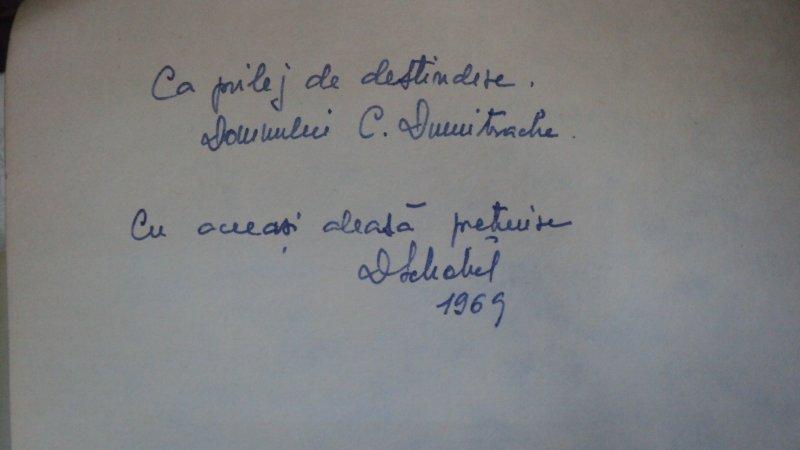 Ca prilej de destindere.
Domnului C. Dumitrache.
Cu aceeași aleasă prețuire
1969